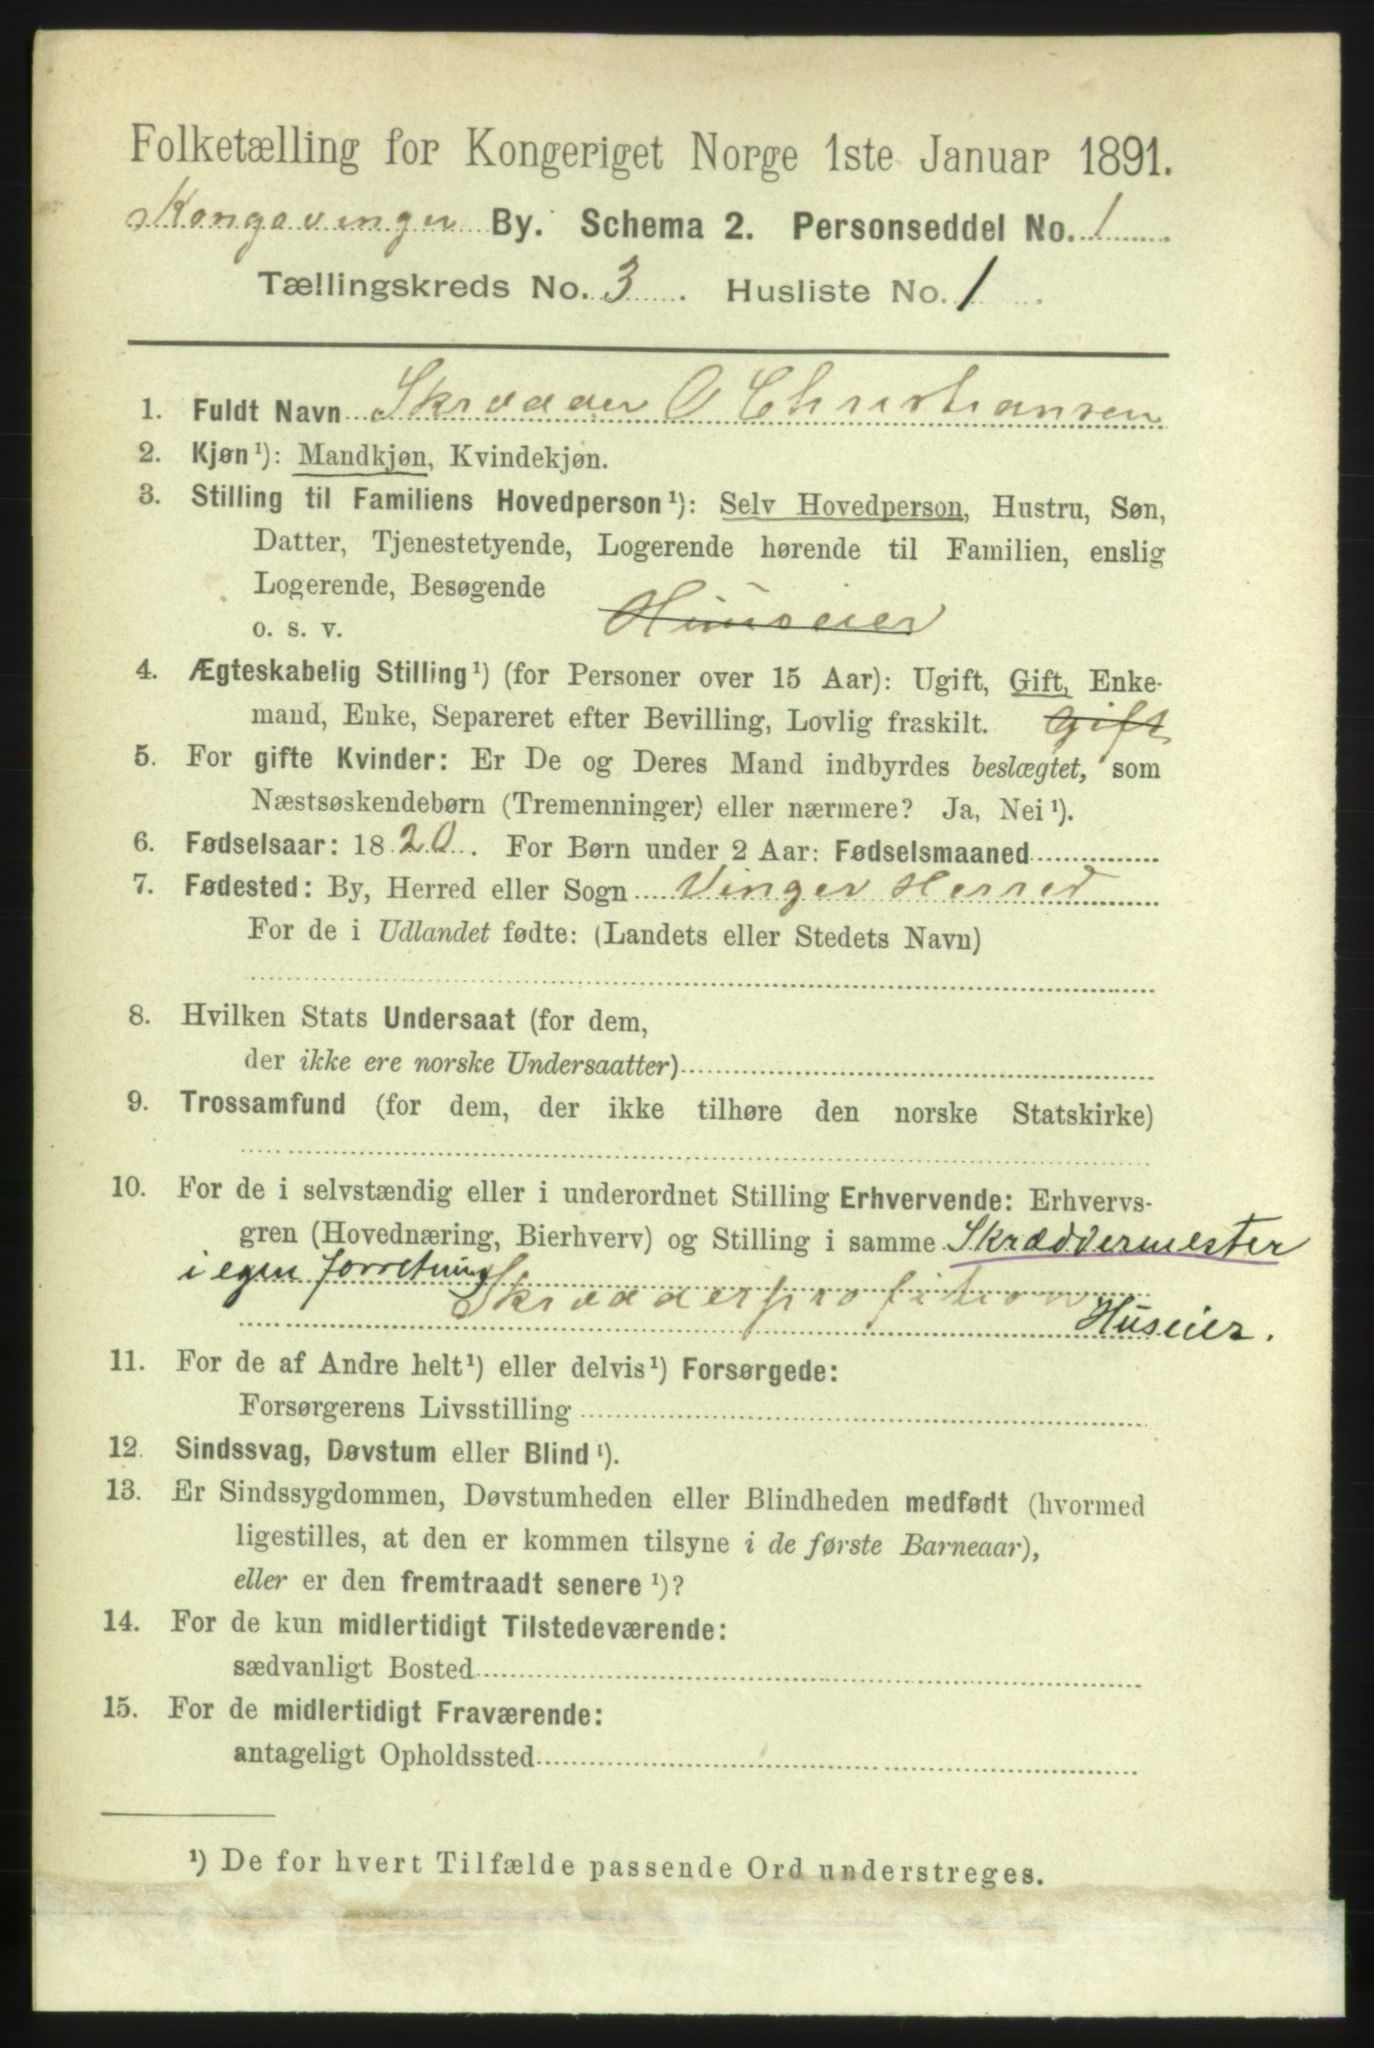 Folketælling for Kongeriget Norge 1ste Januar 1891.
Kongsvinger By. Schema 2. Personseddel No. 1
Tællingskreds No. 3. Husliste No. 1.
1. Fuldt Navn Skrædder O Christiansen
2. Kjøn¹): Mandkjøn, Kvindekjøn.
3. Stilling til Familiens Hovedperson¹): Selv Hovedperson, Hustru, Søn,
Datter, Tjenestetyende, Logerende hørende til Familien, enslig
Logerende, Besøgende
o. s. v. Huuseier
4. Ægteskabelig Stilling¹) (for Personer over 15 Aar): Ugift, Gift, Enke-
mand, Enke, Separeret efter Bevilling, Lovlig fraskilt. Gift
5. For gifte Kvinder: Er De og Deres Mand indbyrdes beslægtet, som
Næstsøskendebørn (Tremenninger) eller nærmere? Ja, Nei¹).
6. Fødselsaar: 1820. For Børn under 2 Aar: Fødselsmaaned
7. Fødested: By, Herred eller Sogn Vinger Herred
For de i Udlandet fødte: (Landets eller Stedets Navn)
8. Hvilken Stats Undersaat (for dem,
der ikke ere norske Undersaatter)
9. Trossamfund (for dem, der ikke tilhøre den norske Statskirke)
10. For de i selvstændig eller i underordnet Stilling Erhvervende: Erhvervs-
gren (Hovednæring, Bierhverv) og Stilling i samme Skræddermester
i egen forretning
Skrædderprofition Huseier.
11. For de af Andre helt¹) eller delvis¹) Forsørgede:
Forsørgerens Livsstilling
12. Sindssvag, Døvstum eller Blind¹).
13. Er Sindssygdommen, Døvstumheden eller Blindheden medfødt (hvormed
ligestilles, at den er kommen tilsyne i de første Barneaar),
eller er den fremtraadt senere¹)?
14. For de kun midlertidigt Tilstedeværende:
sædvanligt Bosted
15. For de midlertidigt Fraværende:
antageligt Opholdssted
¹) De for hvert Tilfælde passende Ord understreges.